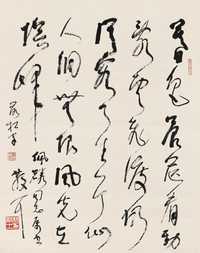 暮色蒼茫看勁
松亂雲飛渡仍
從容天生一个仙
人洞無限風光在
險峰
同志屬
散耳